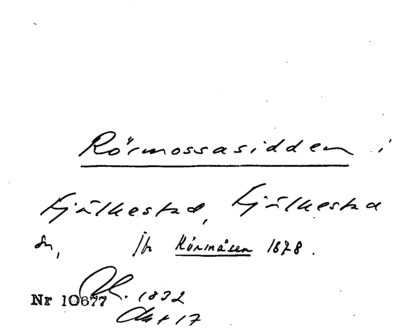 Rörmossasidden i
Fjälkestad, Fjälkestad
sn, Jfr Rörmåsen 1878.
Nr 10677 1832
Akt 17